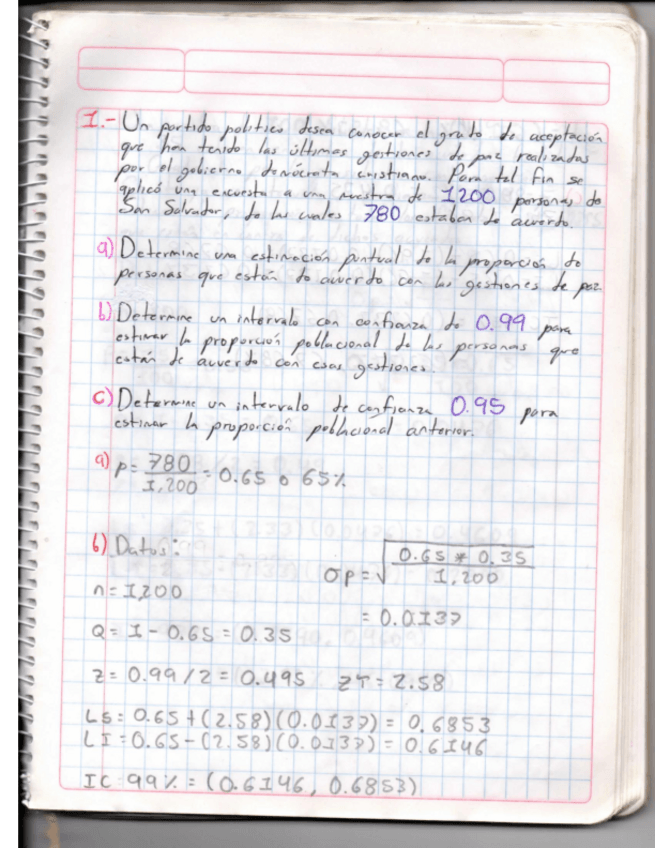 1.- Un partido político desea conocer el grado de aceptación
que han tenido las últimas gestiones de paz realizadas
por el gobierno demócrata cristiano. Para tal fin se
aplicó una encuesta a una muestra de 1200 personas de
San Salvador, de las cuales 780 estaban de acuerdo.
a) Determine una estimación puntual de la proporción de
personas que están de acuerdo con las gestiones de paz.
b) Determine un intervalo con confianza de 0.99 para
estimar la proporción poblacional de las personas que
están de acuerdo con esas gestiones.
c) Determine un intervalo de confianza 0.95 para
estimar la proporción poblacional anterior.
a) p = 780 / 1,200 = 0.65 o 65%
b) Datos:
σp = √ 0.65 * 0.35 / 1,200
n = 1,200
= 0.0137
Q = 1 - 0.65 = 0.35
z = 0.99 / 2 = 0.495 zT = 2.58
Ls = 0.65 + (2.58)(0.0137) = 0.6853
LI = 0.65 - (2.58)(0.0137) = 0.6146
IC 99% = (0.6146, 0.6853)